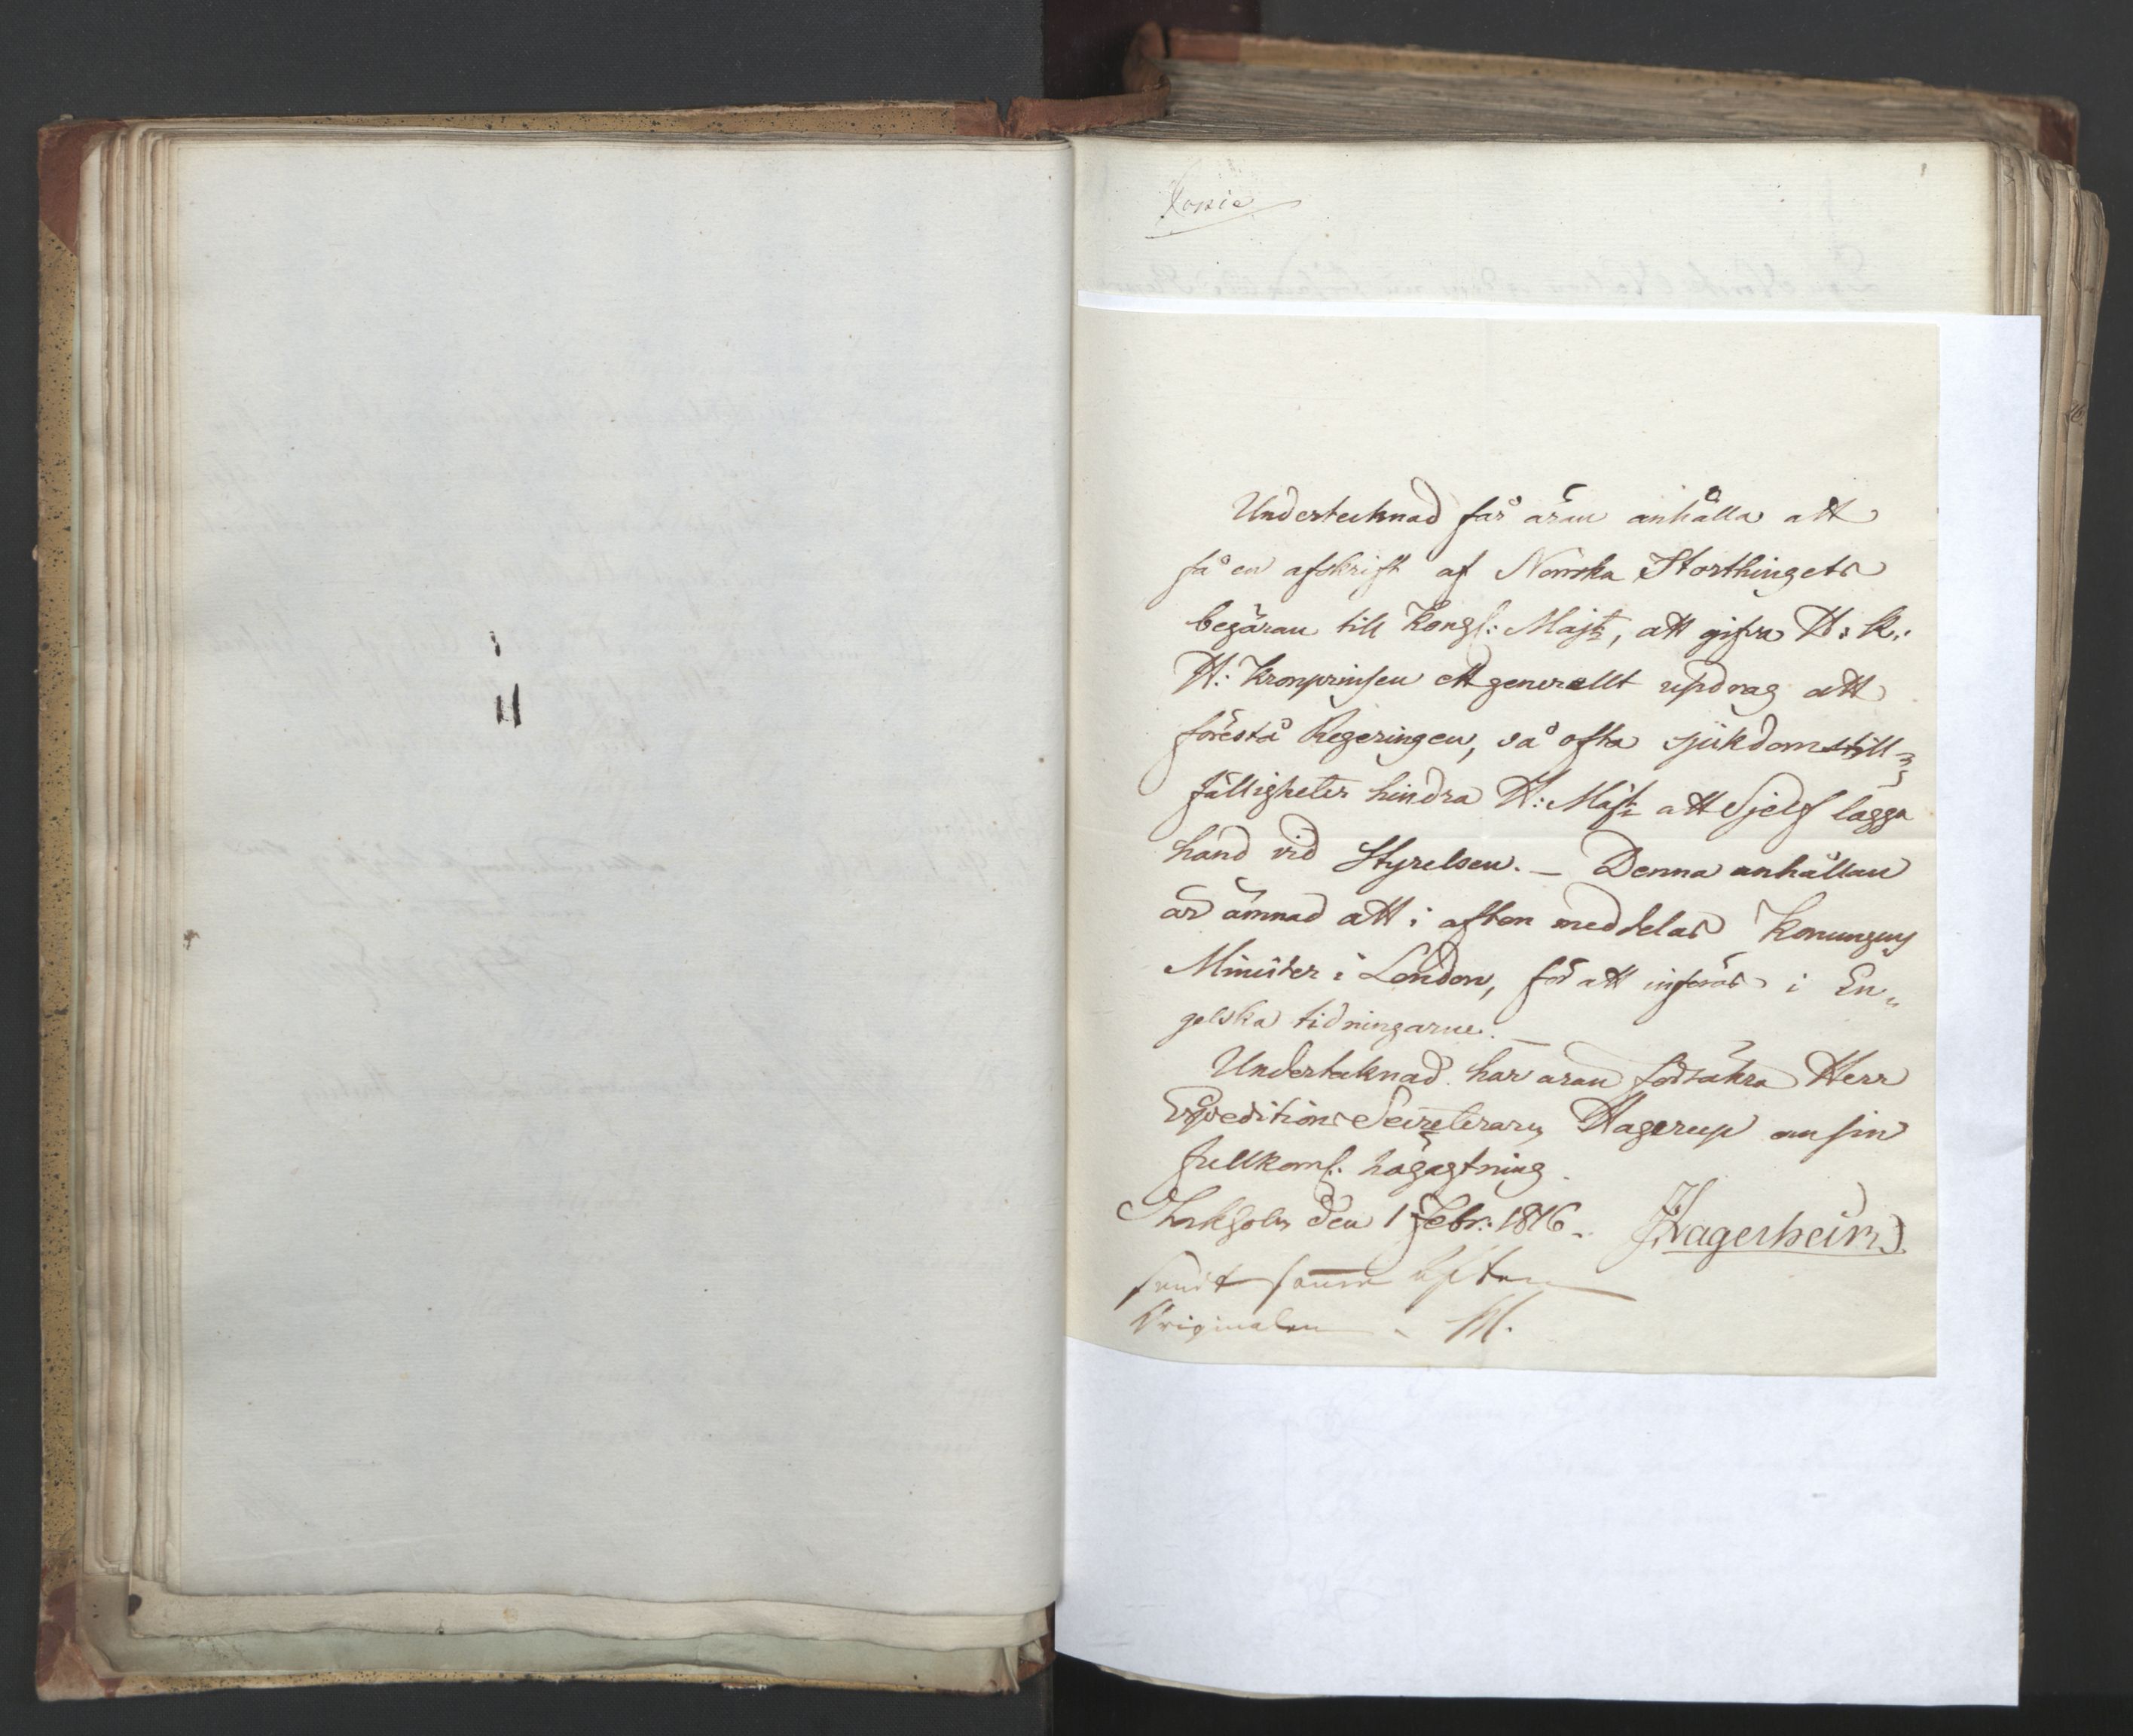 Kopie
Undertecknad får äran anhålla att
få en afskrift af Norrska Storthingets
begäran till Kongl: Majt, att gifva H: K:
H: Kronprinsen ett generellt updrag att
förestå Regeringen, så ofta sjukdomstill=
fälligheter hindra H: Majt att Sjelf lägga
hand vid Styrelsen. — Denna anhållan
är ämnad att i afton meddelas Konungens
Minister i London, för att införas i En„
gelska tidningarne. —
Undertecknad har äran försäkra Herr
Expeditions Secreteraren Hagerup om sin
fullkoml. högagtning.
Stockholm den 1 Febr: 1816.
Lagerheim
sendt samme Aften
Originalen M.